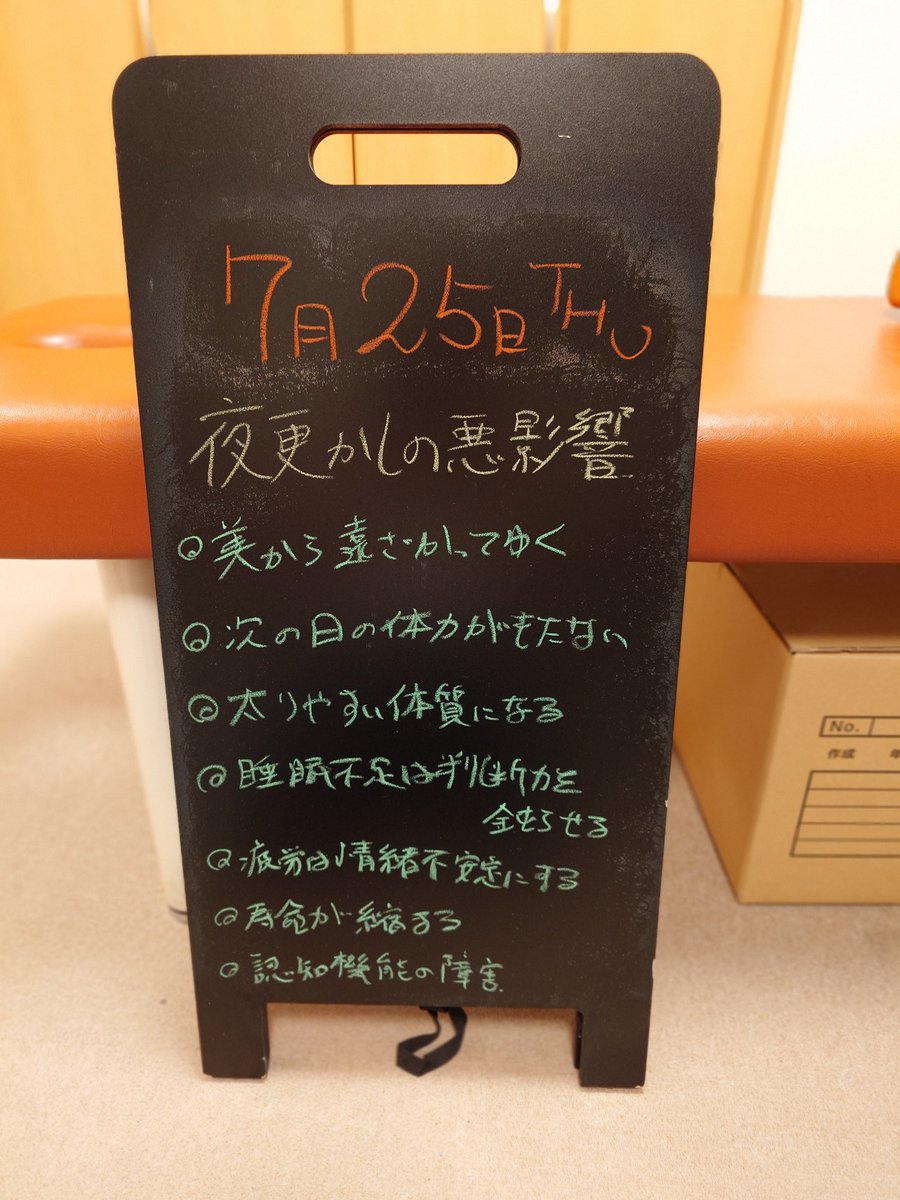 7月25日THU
夜更かしの悪影響
◎美から遠ざかってゆく
◎次の日の体力がもたない
◎太りやすい体質になる
◎睡眠不足は判断力を
鈍らせる
◎疲労は情緒不安定にする
◎寿命が縮まる
◎認知機能の障害
No.
作成 年